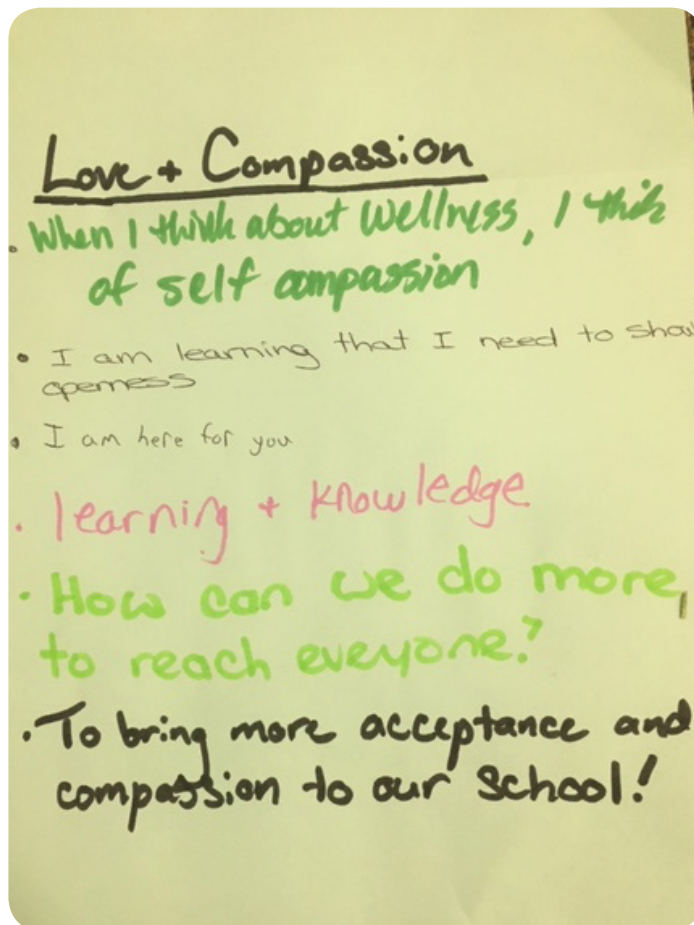 Love + Compassion
• When I think about Wellness, I think
of self compassion
• I am learning that I need to show
openness
• I am here for you
• learning + knowledge
• How can we do more,
to reach eveyone?
• To bring more acceptance and
compassion to our school!